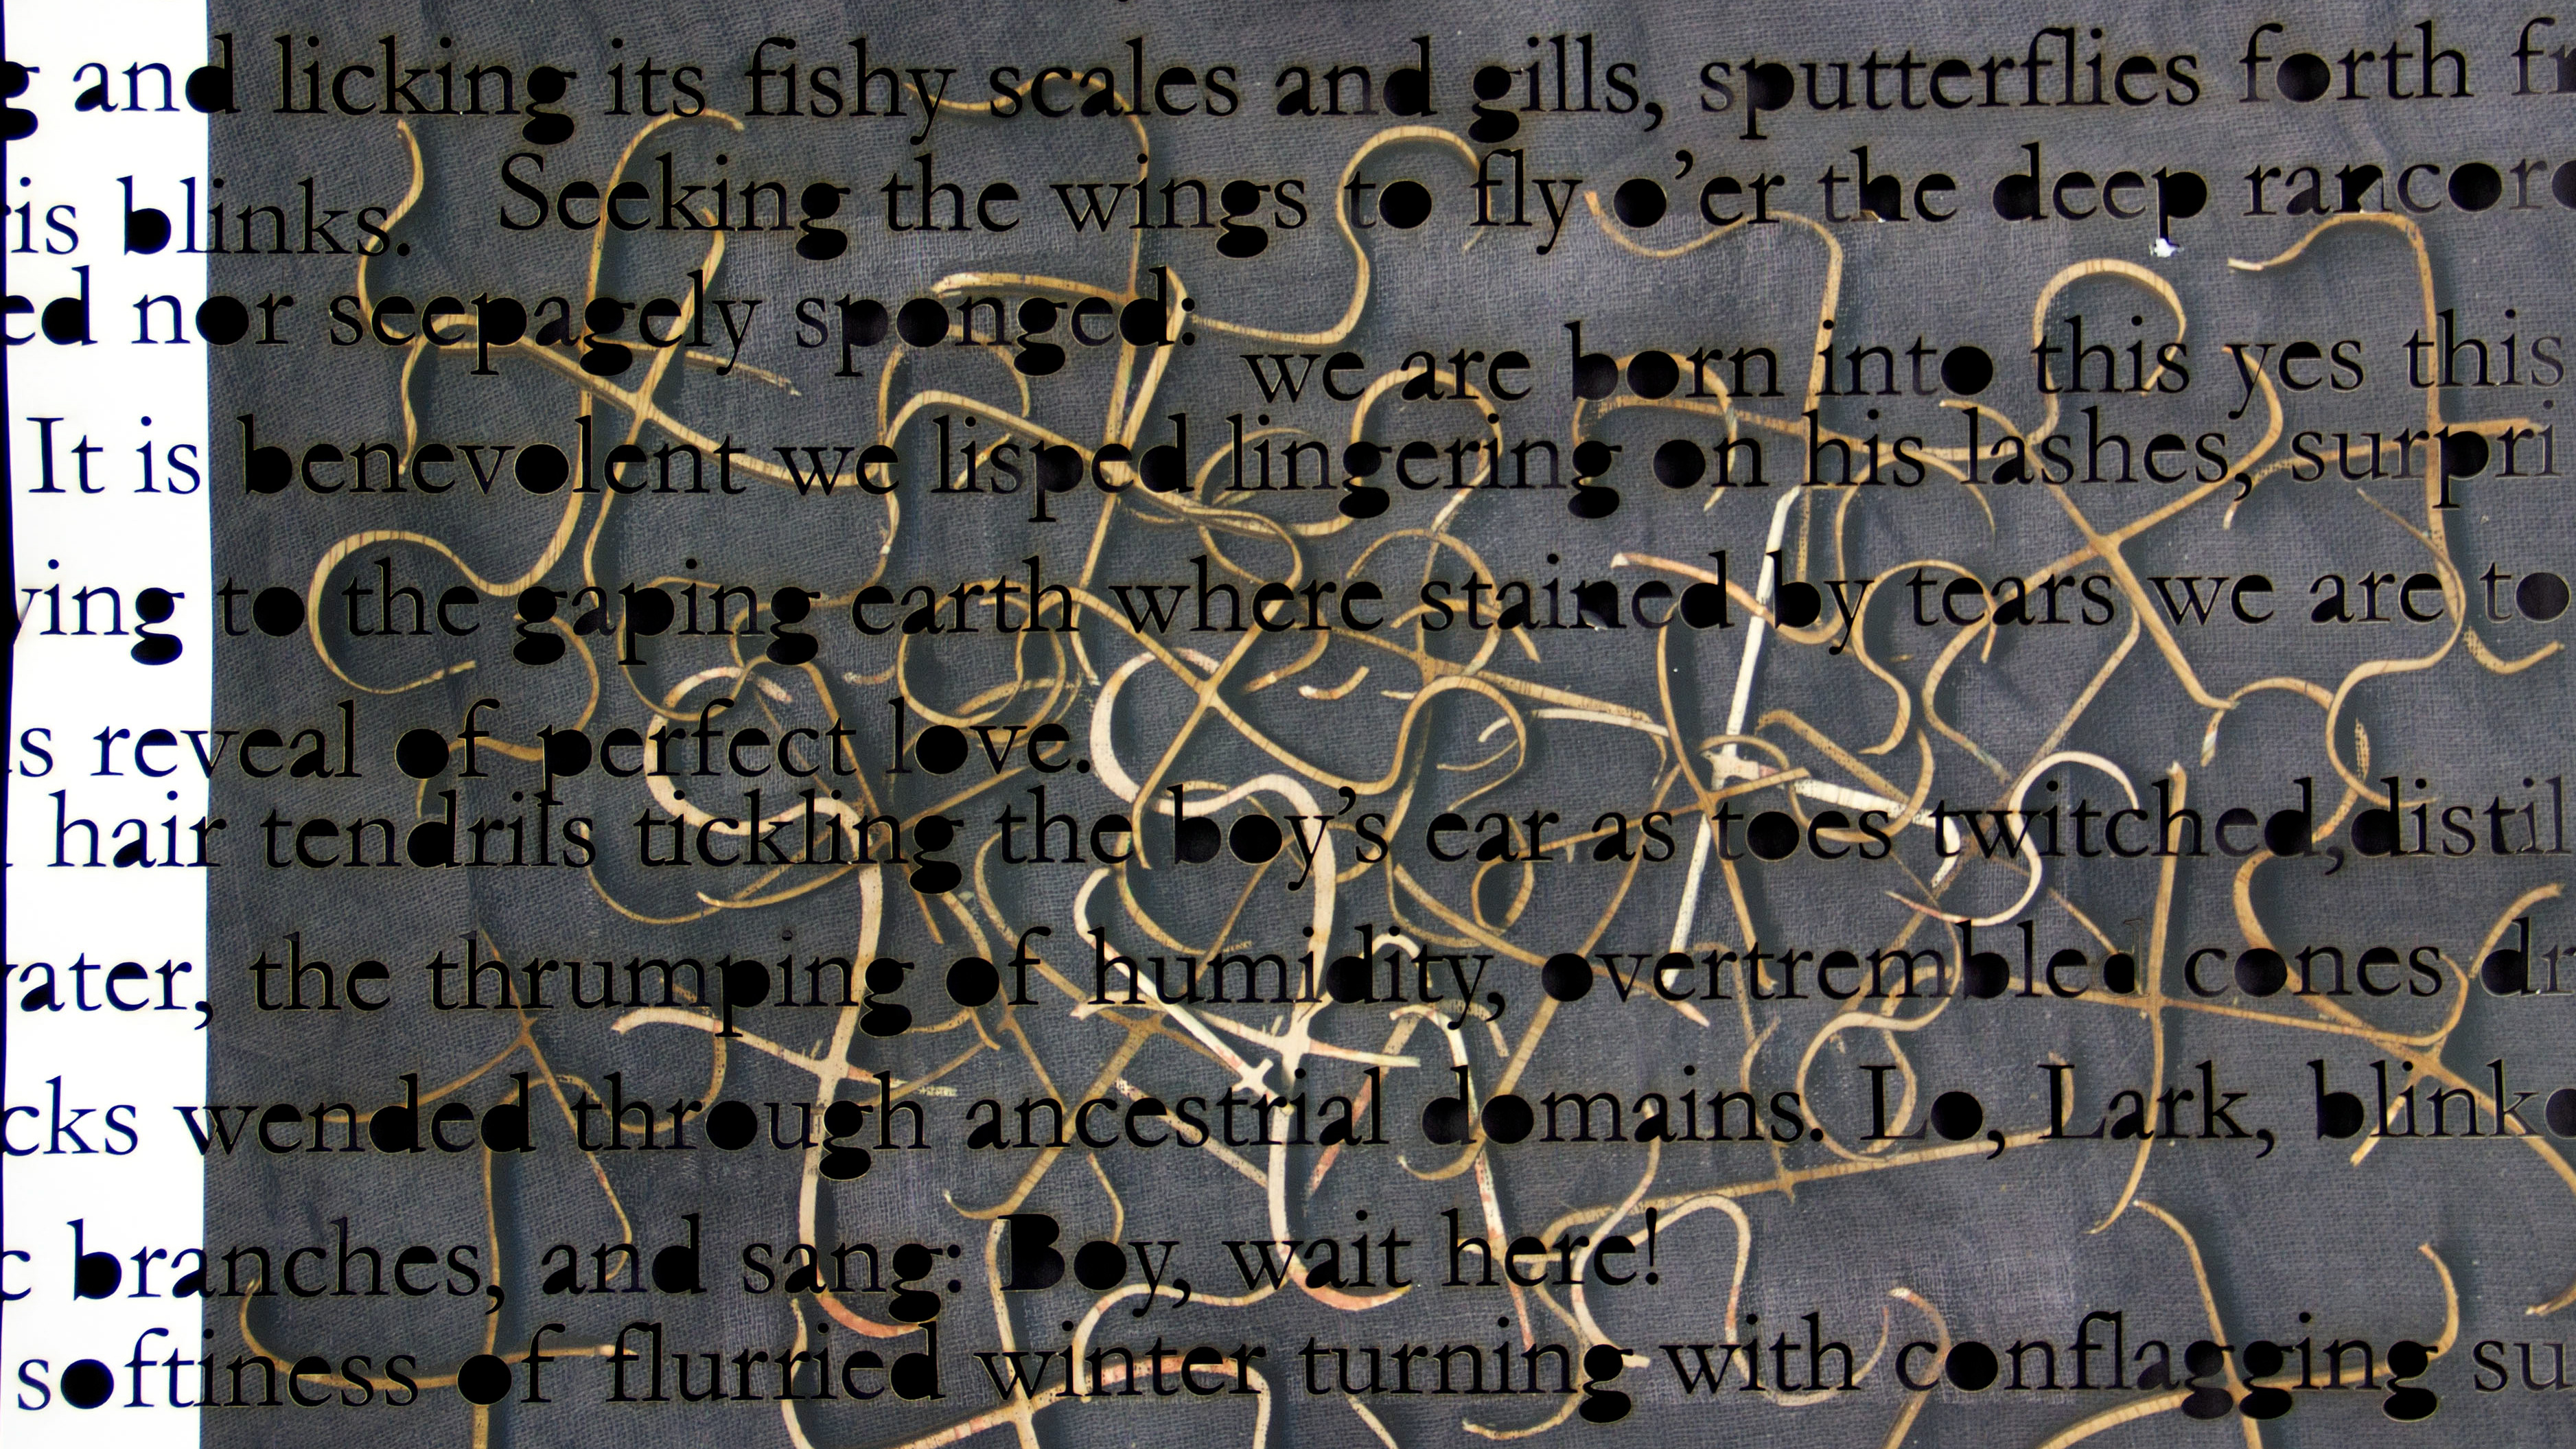 g and licking its fishy scales and gills, sputterflies forth fr
is blinks. Seeking the wings to fly o'er the deep rancor
ed nor seepagely sponged:
we are born into this yes this
It is benevolent we lisped lingering on his lashes, surpri
ying to the gaping earth where stained by tears we are to
s reveal of perfect love.
hair tendrils tickling the boy's ear as toes twitched,distil
ater, the thrumping of humidity, overtrembled cones dr
cks wended through ancestrial domains. Lo, Lark, blink
c branches, and sang: Boy, wait here!
softiness of flurried winter turning with conflagging su